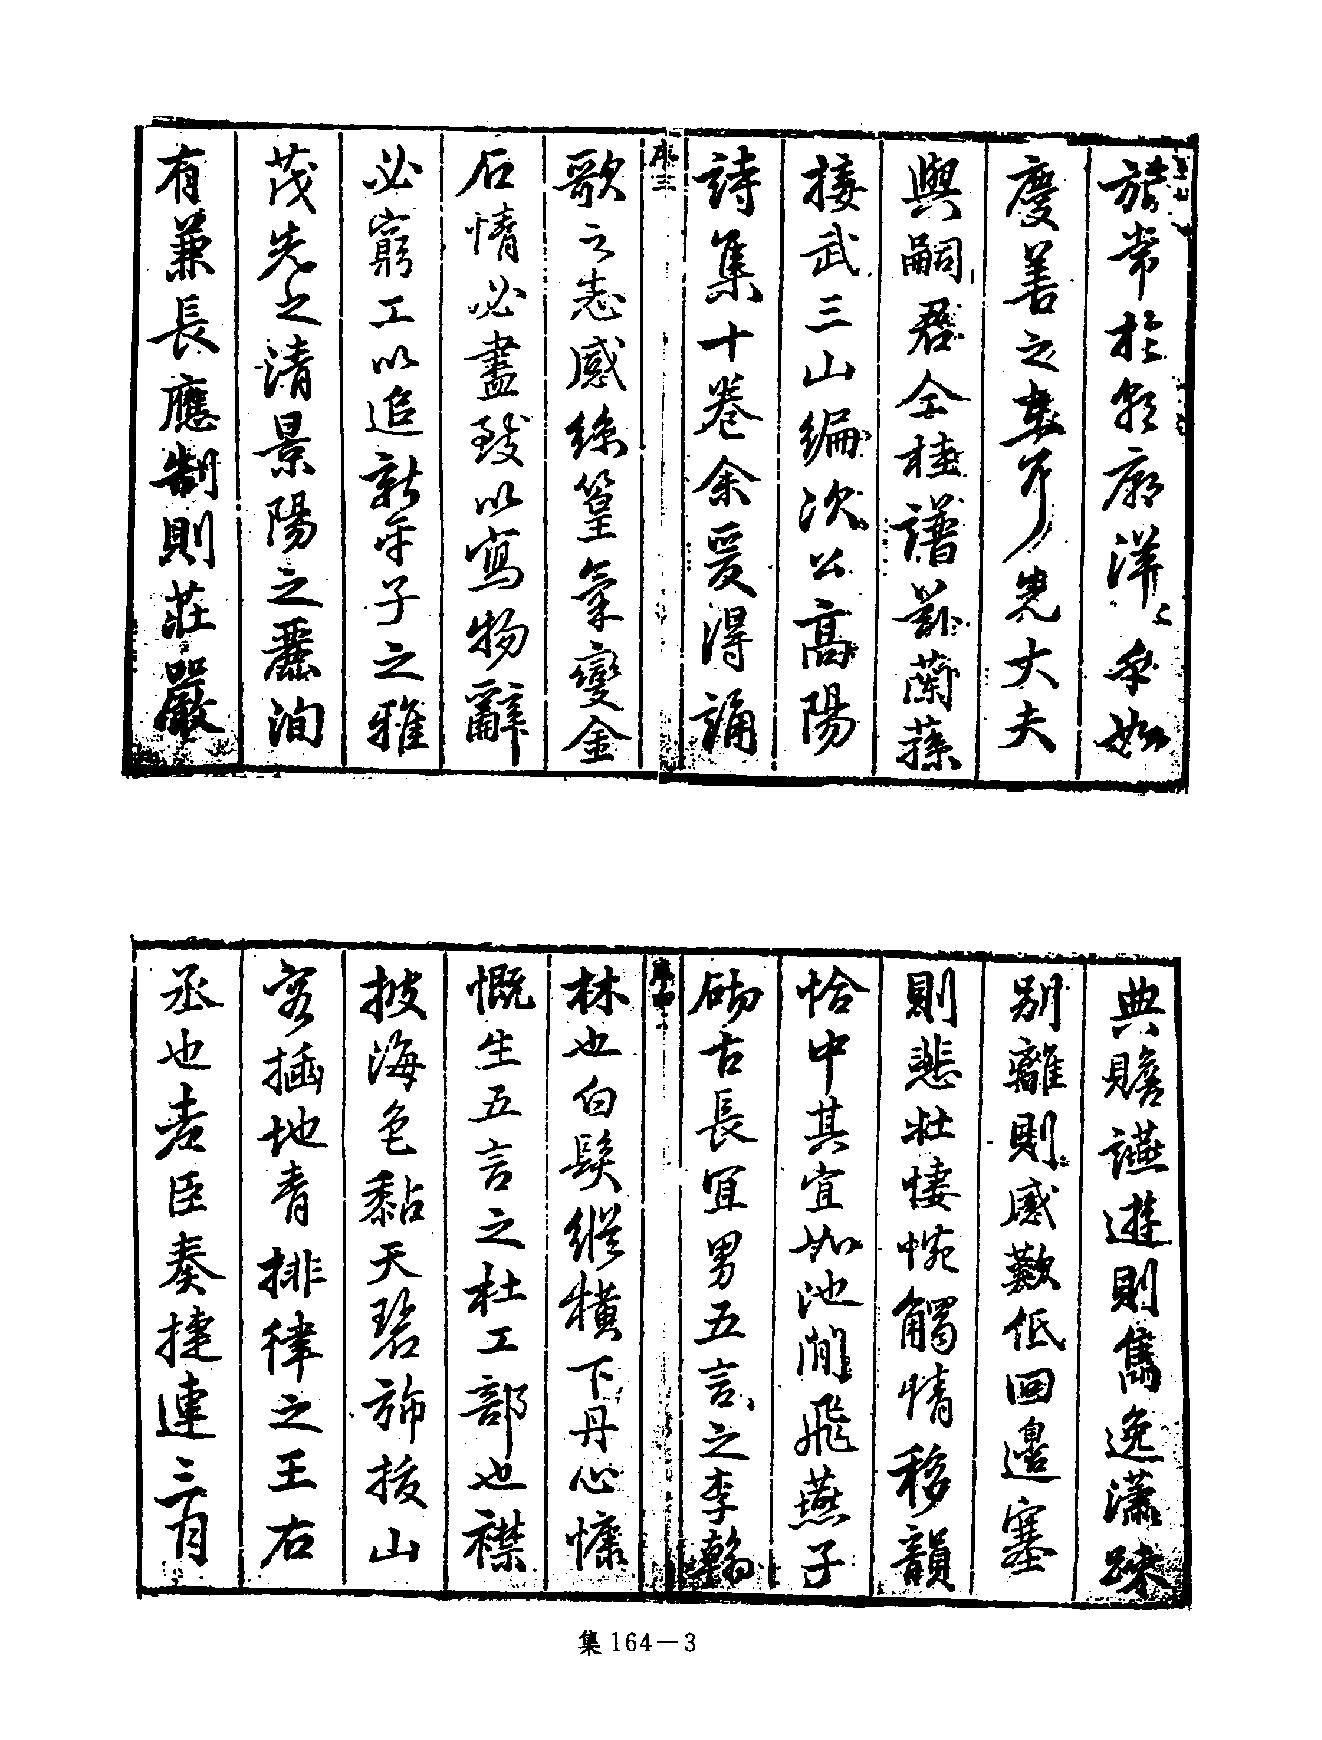 旂常於郊廟洋〻乎如
慶善之
先大夫
與嗣君仝桂譜蘭蓀
接武三山編次公高陽
詩集十卷余爰得誦
序三
歌之志感絲篁氣變金
石情必盡致以寫物辭
必窮工以追新平子之雅
茂先之清景陽之麗洵
有兼長應制則莊嚴
典贍讌遊則雋逸瀟疎
別離則感歎低回邊塞
則悲壯悽惋觸情移韻
恰中其宜如池閒飛燕子
砌古長宜男五言之李翰
序四
林也白髮縱橫下丹心慷
慨生五言之杜工部也襟
披海色黏天碧旆拔山
容插地青排律之王右
丞也老臣奏捷連三月
集164－3